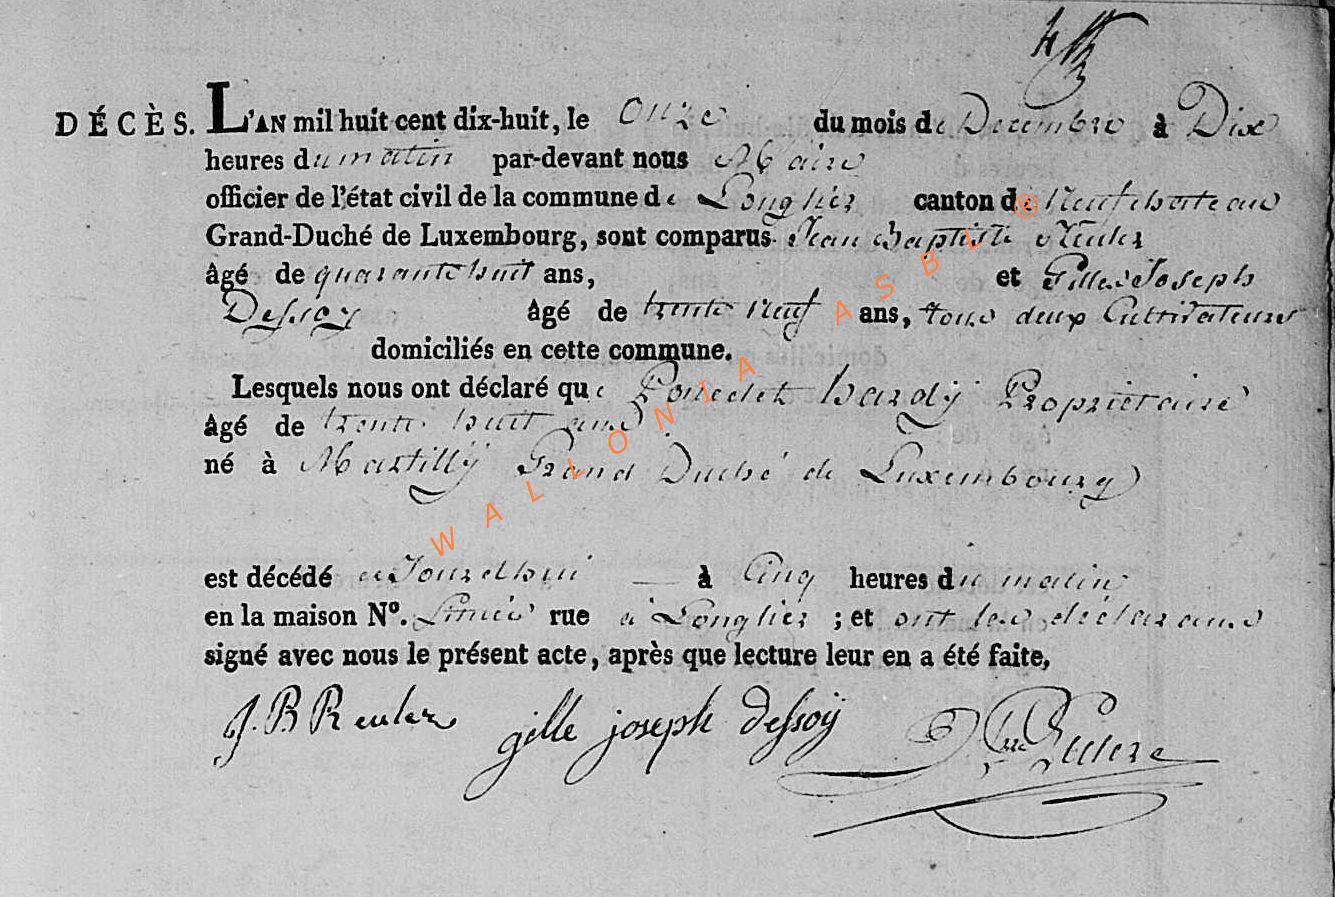 DÉCÈS. L'AN mil huit cent dix-huit, le Onze du mois de Decembre à Dix
heures du matin par-devant nous Maire
officier de l'état civil de la commune de Longlier canton de Neufchateau
Grand-Duché de Luxembourg, sont comparus Jean Baptiste Reuler
âgé de quarante huit ans, et Gille Joseph
Dessoy âgé de trente Neuf ans, tous deux Cultivateurs
domiciliés en cette commune.
Lesquels nous ont déclaré que Poncelet hardÿ Proprietaire
âgé de trente huit ans
né à Martillÿ Grand Duché de Luxembourg
est décédé aJourdhui à Cinq heures du matin
en la maison N°. rue à Longlier ; et ont les déclarans
signé avec nous le présent acte, après que lecture leur en a été faite,
J. B Reuler gille joseph dessoÿ
WALLONIA ASBL ©